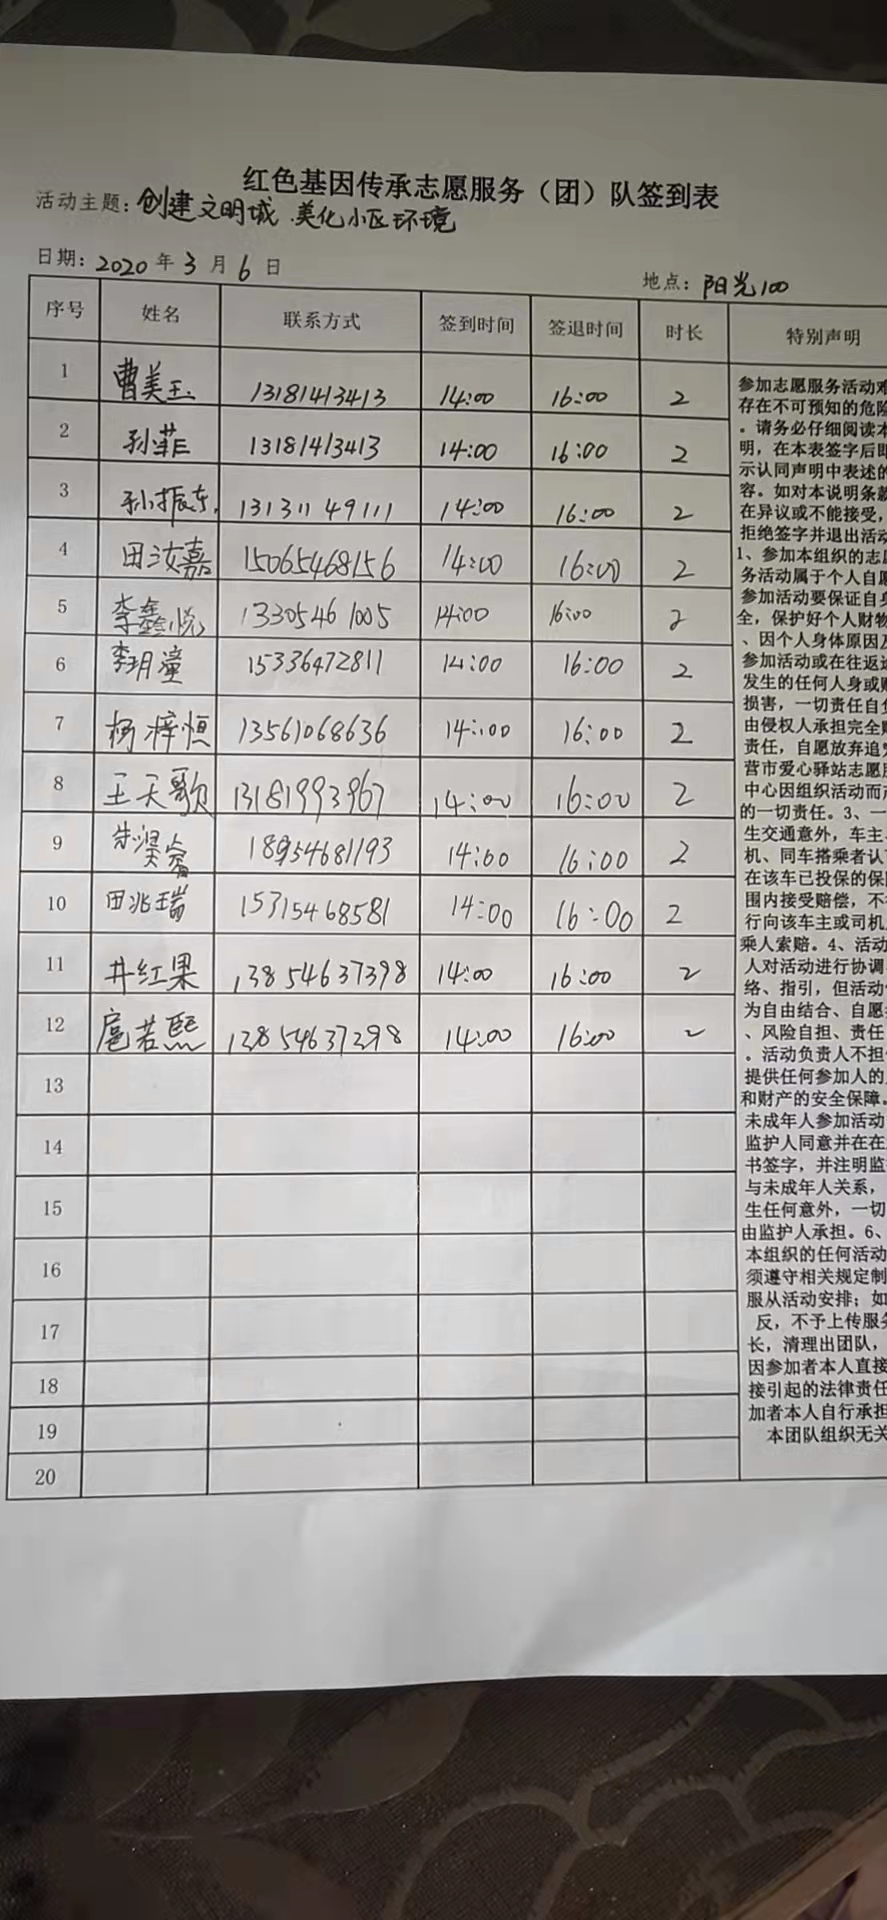 红色基因传承志愿服务（团）队签到表
活动主题：创建文明城 美化小区环境
日期：2020年3月6日 地点：阳光100
序号 姓名 联系方式 签到时间 签退时间 时长 特别声明
1 曹美玉 13181413413 14:00 16:00 2
2 孙菲 13181413413 14:00 16:00 2
3 孙振东 13131149111 14:00 16:00 2
4 田汝嘉 15065468156 14:00 16:00 2
5 李鑫悦 13305461005 14:00 16:00 2
6 李玥潼 15336472811 14:00 16:00 2
7 杨梓恒 13561068636 14:00 16:00 2
8 王天歌 13181993967 14:00 16:00 2
9 朱 18954681193 14:00 16:00 2
10 田兆瑞 15315468581 14:00 16:00 2
11 井红果 13854637398 14:00 16:00 2
12 扈若熙 13854637398 14:00 16:00 2
13
14
15
16
17
18
19
20
参加志愿服务活动难
存在不可预知的危险
。请务必仔细阅读本
明，在本表签字后即
示认同声明中表述的
容。如对本说明条款
在异议或不能接受，
拒绝签字并退出活动
1、参加本组织的志愿
务活动属于个人自愿
参加活动要保证自身
全，保护好个人财物
、因个人身体原因及
参加活动或在往返途
发生的任何人身或财
损害，一切责任自负
由侵权人承担完全赔
责任，自愿放弃追究
营市爱心驿站志愿服
中心因组织活动而产
的一切责任。3、一
生交通意外，车主、
机、同车搭乘者认可
在该车已投保的保险
围内接受赔偿，不
行向该车主或司机、
乘人索赔。4、活动
人对活动进行协调、
络、指引，但活动
为自由结合、自愿
、风险自担、责任
。活动负责人不担
提供任何参加人的
和财产的安全保障。
未成年人参加活动
监护人同意并在在
书签字，并注明监
与未成年人关系，
生任何意外，一切
由监护人承担。6、
本组织的任何活动
须遵守相关规定制
服从活动安排；如
反，不予上传服务
长，清理出团队，
因参加者本人直接
接引起的法律责任
加者本人自行承担
本团队组织无关